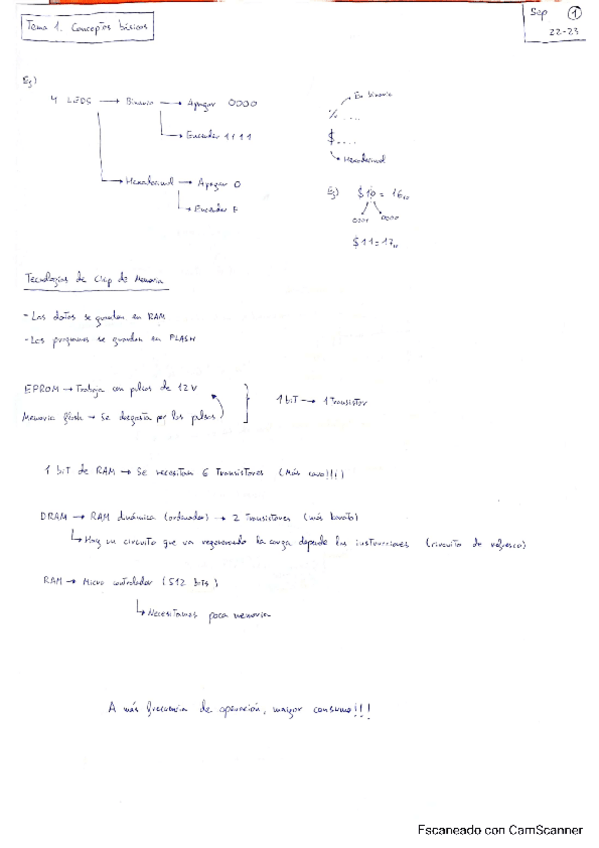 Tema 1. Conceptos básicos
Sep 1
22-23
Ej)
4 LEDS → Binario → Apagar 0000
→ Encender 1111
→ Hexadecimal → Apagar 0
→ Encender F
En binario
% ....
$ ....
Hexadecimal
Ej) $10 = 16₁₀
0001 0000
$11 = 17₁₀
Tecnologías de Chip de Memoria
- Los datos se guardan en RAM
- Los programas se guardan en FLASH
EPROM → Trabaja con pulsos de 12V
Memoria flash → Se desgasta por los pulsos
1 bit → 1 Transistor
1 bit de RAM → Se necesitan 6 Transistores (Más caro!!!)
DRAM → RAM dinámica (ordenador) → 2 Transistores (más barato)
↳ Hay un circuito que va regenerando la carga depende las instrucciones (circuito de refresco)
RAM → Micro controlador (512 bits)
↳ Necesitamos poca memoria
A más frecuencia de operación, mayor consumo!!!
Escaneado con CamScanner